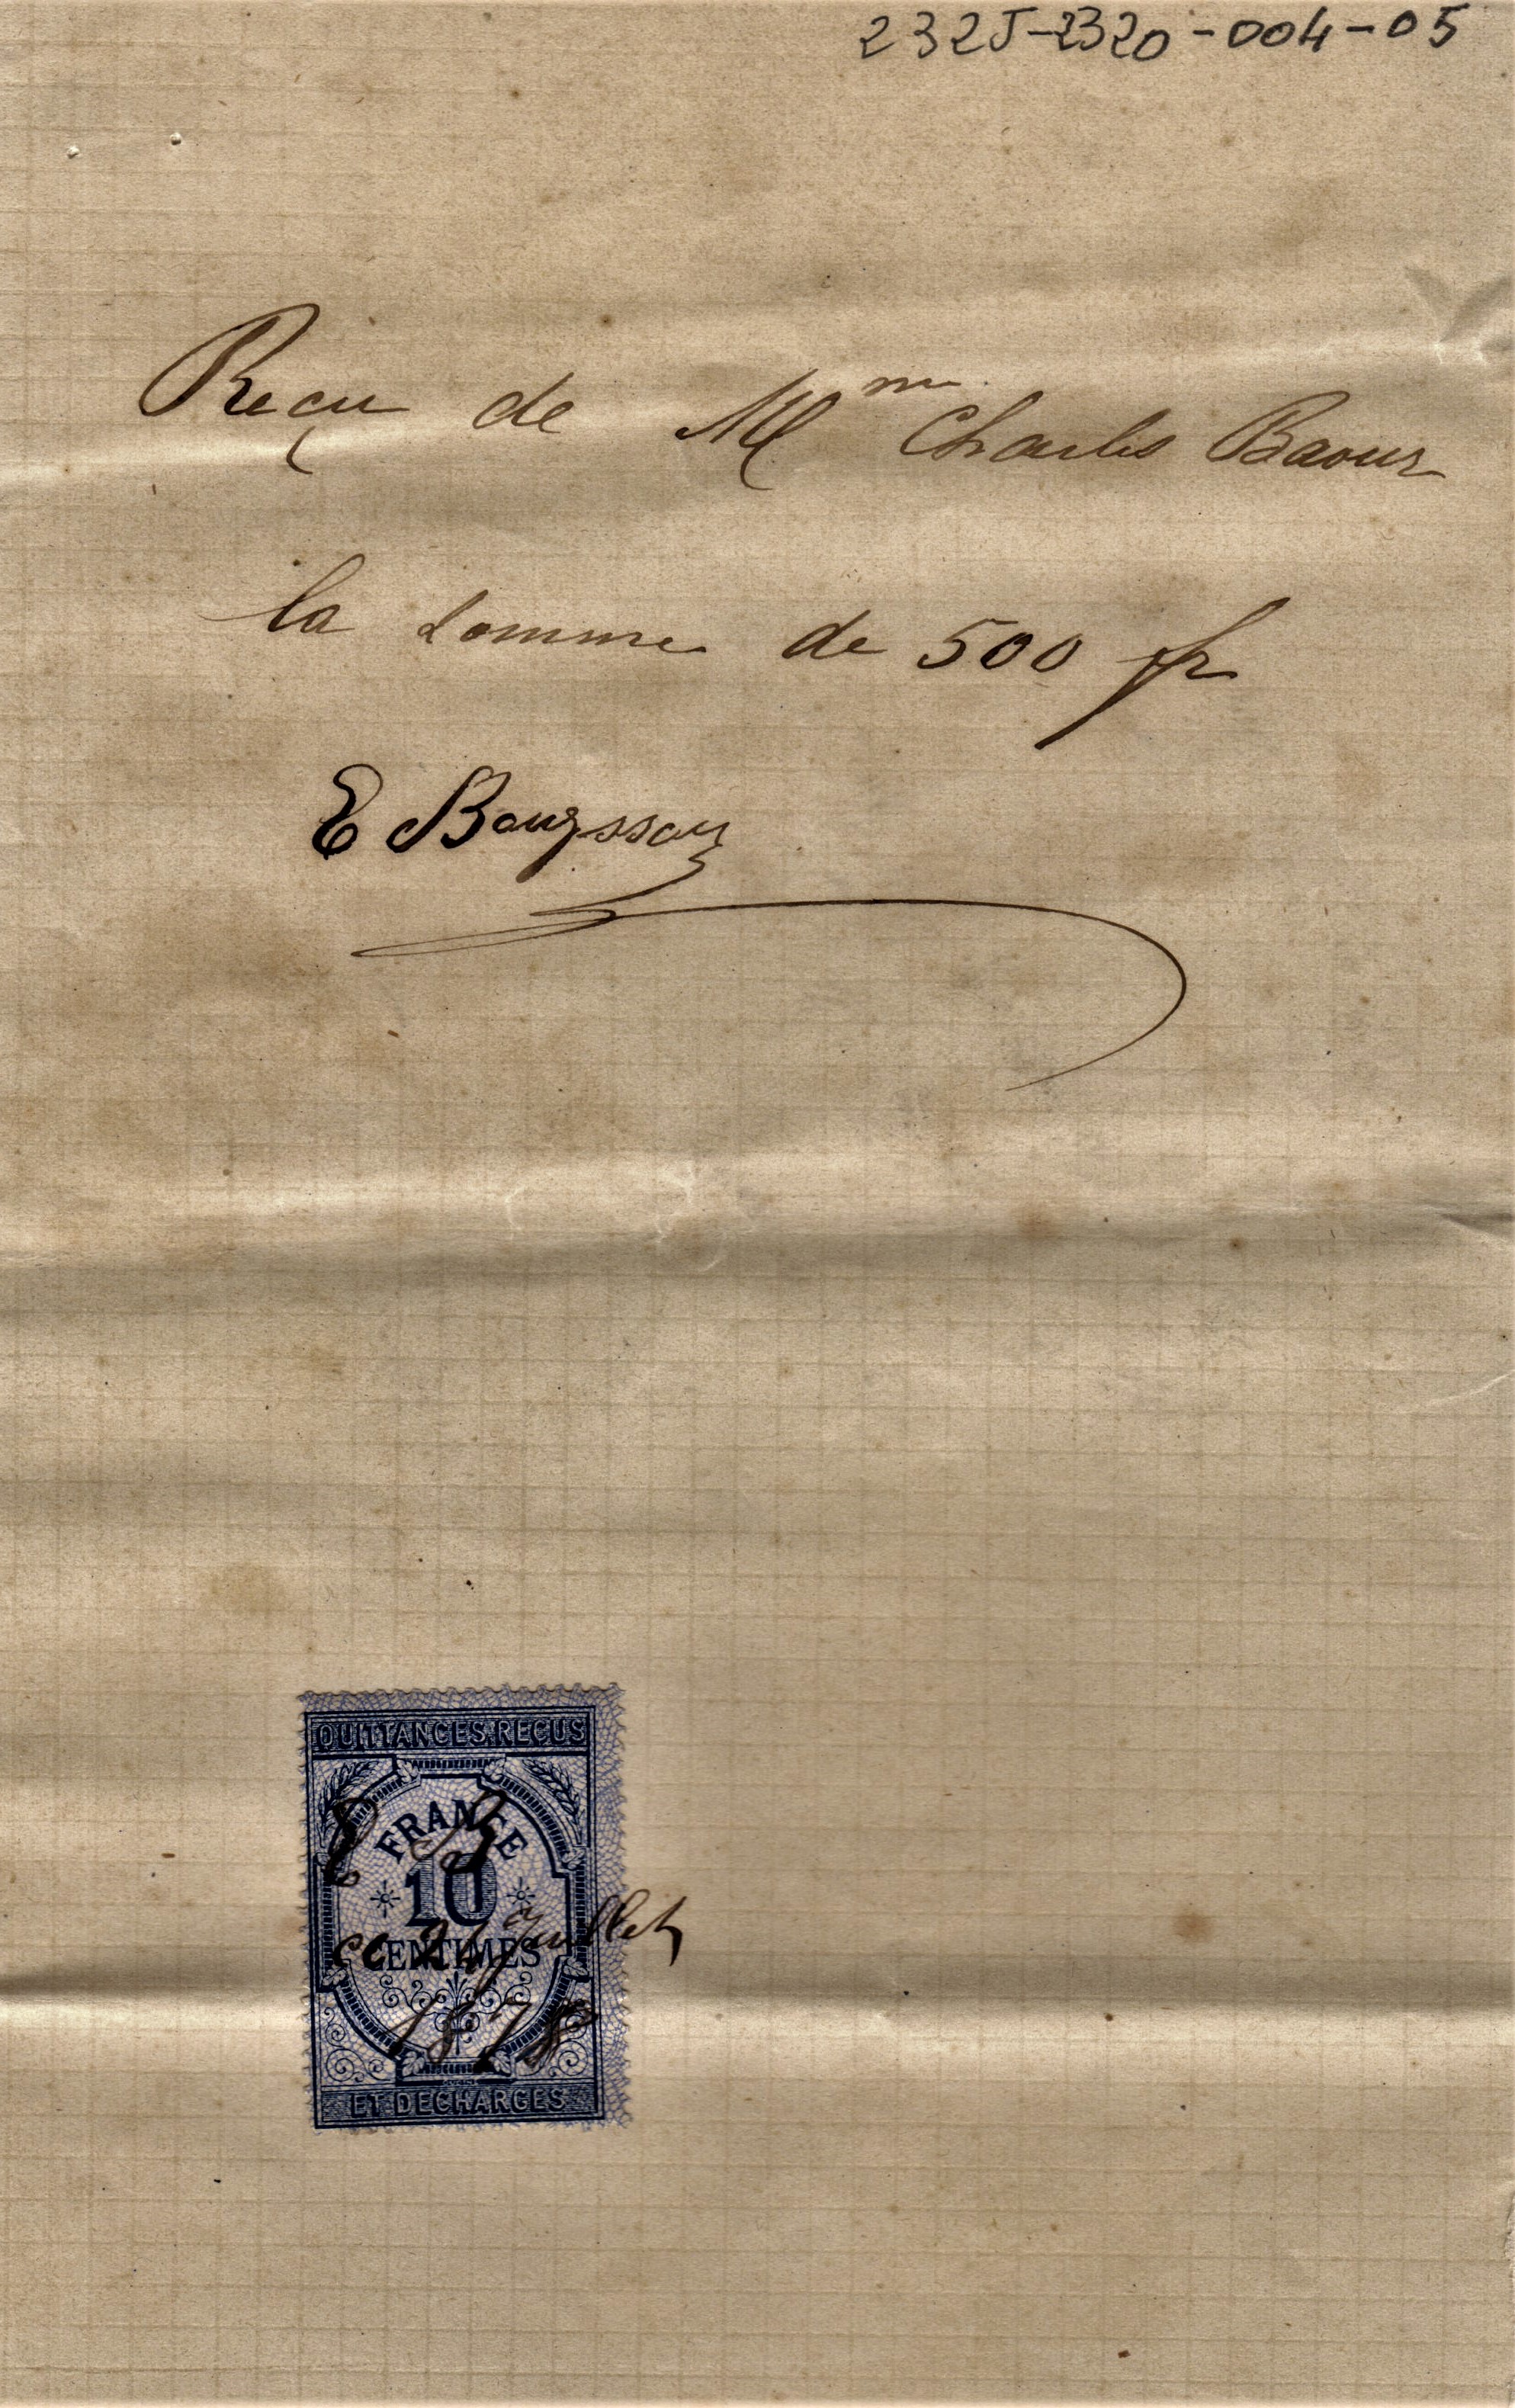 232J-2320-004-05
Reçu de Mme Charles Baour
la somme de 500 fr
E Bouyssou
QUITTANCES, REÇUS
FRANCE
E B
10
CENTIMES
ce 24 Juillet
1878
ET DECHARGES